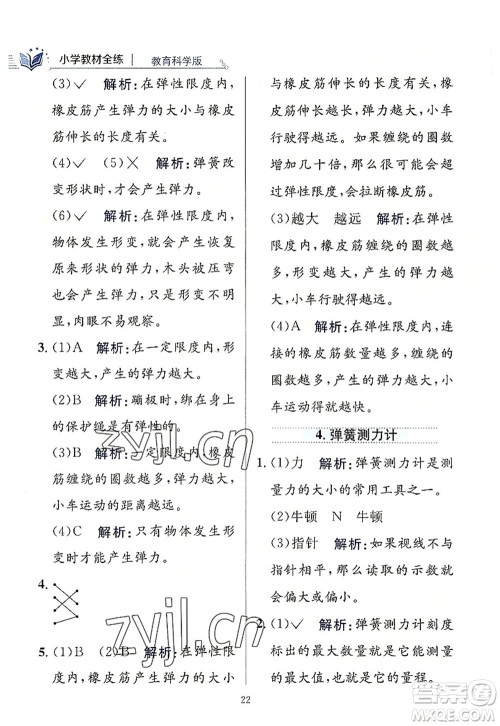 小学教材全练 教育科学版
(3)✓ 解析:在弹性限度内,
橡皮筋产生弹力的大小与橡皮
筋伸长的长度有关。
(4)✓ (5)× 解析:弹簧改
变形状时,才会产生弹力。
(6)✓ 解析:在弹性限度内,
物体发生形变,就会产生恢复
原来形状的弹力,木头被压弯
也会产生弹力,只是形变不明
显,肉眼不易观察。
3. (1)A 解析:在一定限度内,形
变越大,产生的弹力越大。
(2)B 解析:蹦极时,绑在身上
的保护绳是有弹性的。
(3)B 解析:一定限度内,橡皮
筋缠绕的圈数越多,弹力越大,
小车运动的距离越远。
(4)C 解析:只有物体发生形
变时才能产生弹力。
4.
5. (1)B (2)B 解析:在弹性限
度内,橡皮筋产生弹力的大小
与橡皮筋伸长的长度有关,伸
长的长度越大,弹力越大,小车
行驶得越远。如果缠绕的圈数
增加几十倍,那么很可能超过
弹性限度,会拉断橡皮筋。
(3)越大 越远 解析:在弹性
限度内,橡皮筋缠绕的圈数越
多,形变越大,产生的弹力越
大,小车行驶得越远。
(4)A 解析:在弹性限度内,连
接的橡皮筋数量越多,缠绕的
圈数越多,弹力越大,小车运动
得就越快。
4. 弹簧测力计
1. (1)力 解析:弹簧测力计是测
量力的大小的常用工具之一。
(2)牛顿 N 牛顿
(3)指针 解析:如果视线不与
指针相平,那么读取的示数就会
偏大或偏小。
2. (1)✓ 解析:测力计上标示
的最大数量值就是它能够测
量的最大值,如果力的大小超
22
zyjl.cn
zyjl.cn
答案圈
MXQE.COM